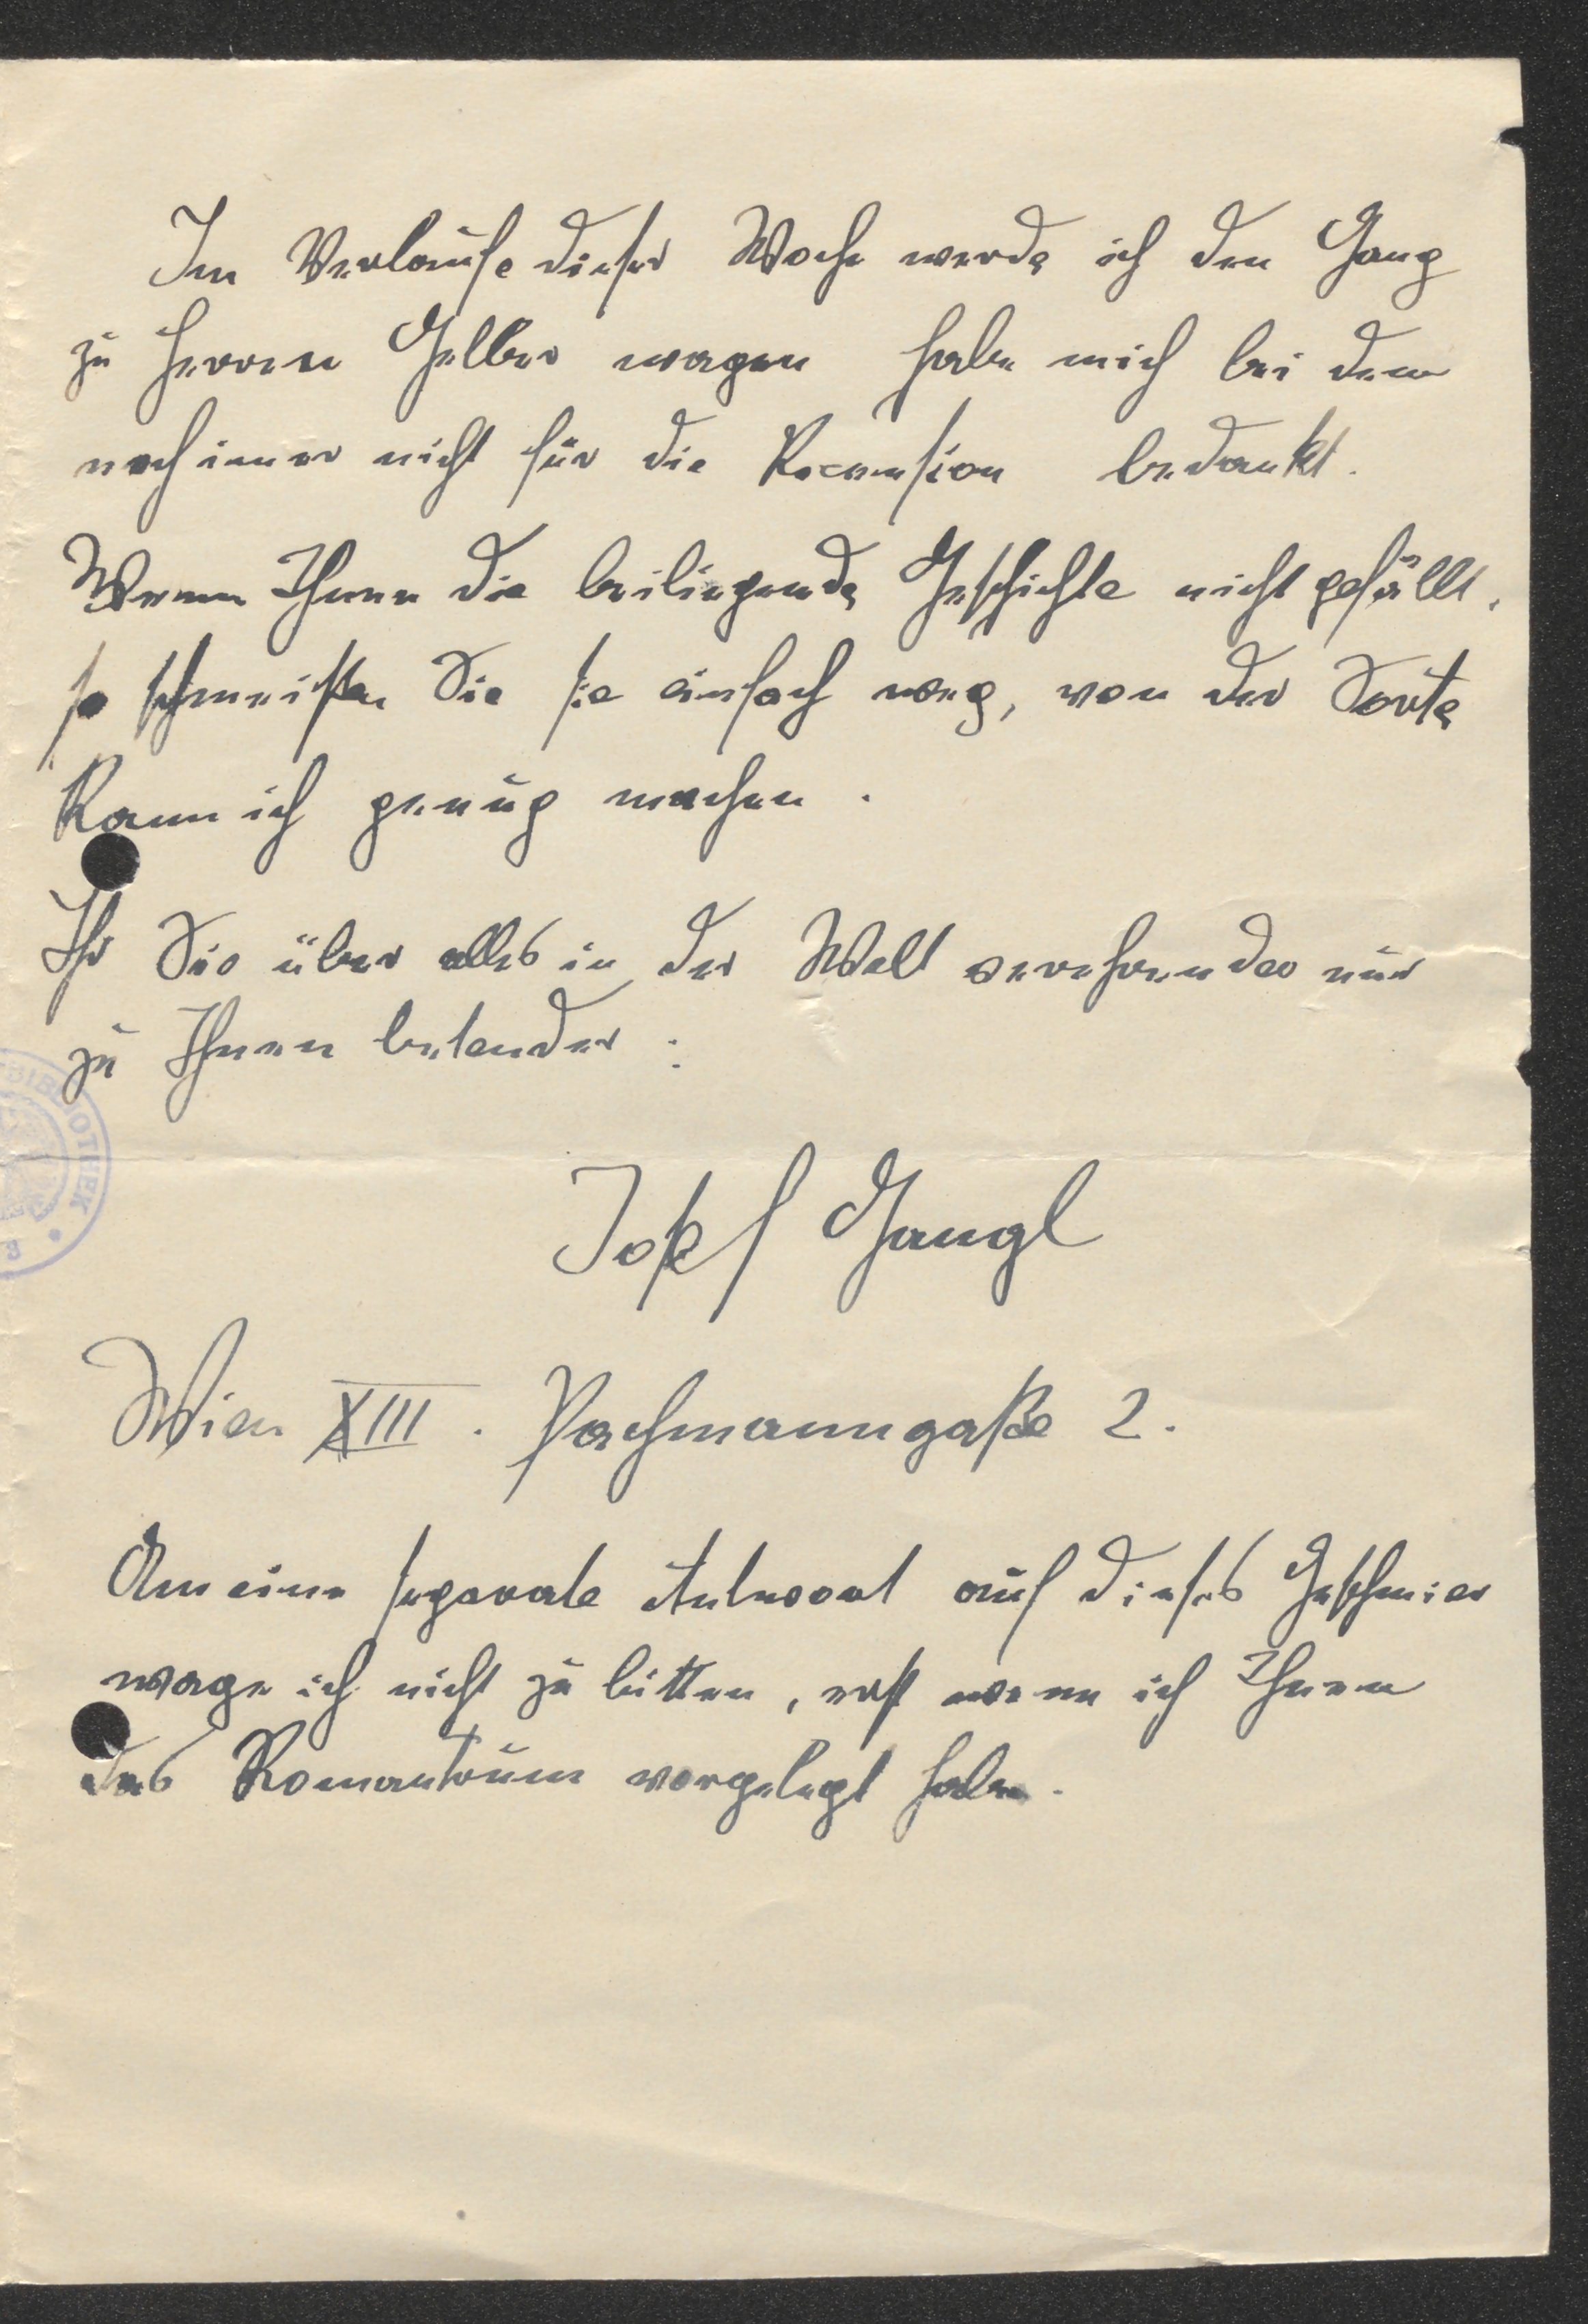 Im Verlaufe dieser Woche werde ich den Gang
zu Herren Gelber wagen habe mich bei dem
noch immer nicht für die Recension bedankt.
Wenn Ihnen die beiliegende Geschichte nicht gefällt,
so schmeißen Sie sie einfach weg, von der Sorte
kann ich genug machen.
Ihr Sie über alles in der Welt verehrender nur
zu Ihnen betender:
Josef Gangl
Wien XIII. Pachmanngaße 2.
Um eine separate Antwort auf dieses Geschmier
wage ich nicht zu bitten, erst wenn ich Ihnen
das vorgelegt habe.
BIBLIOTHEK